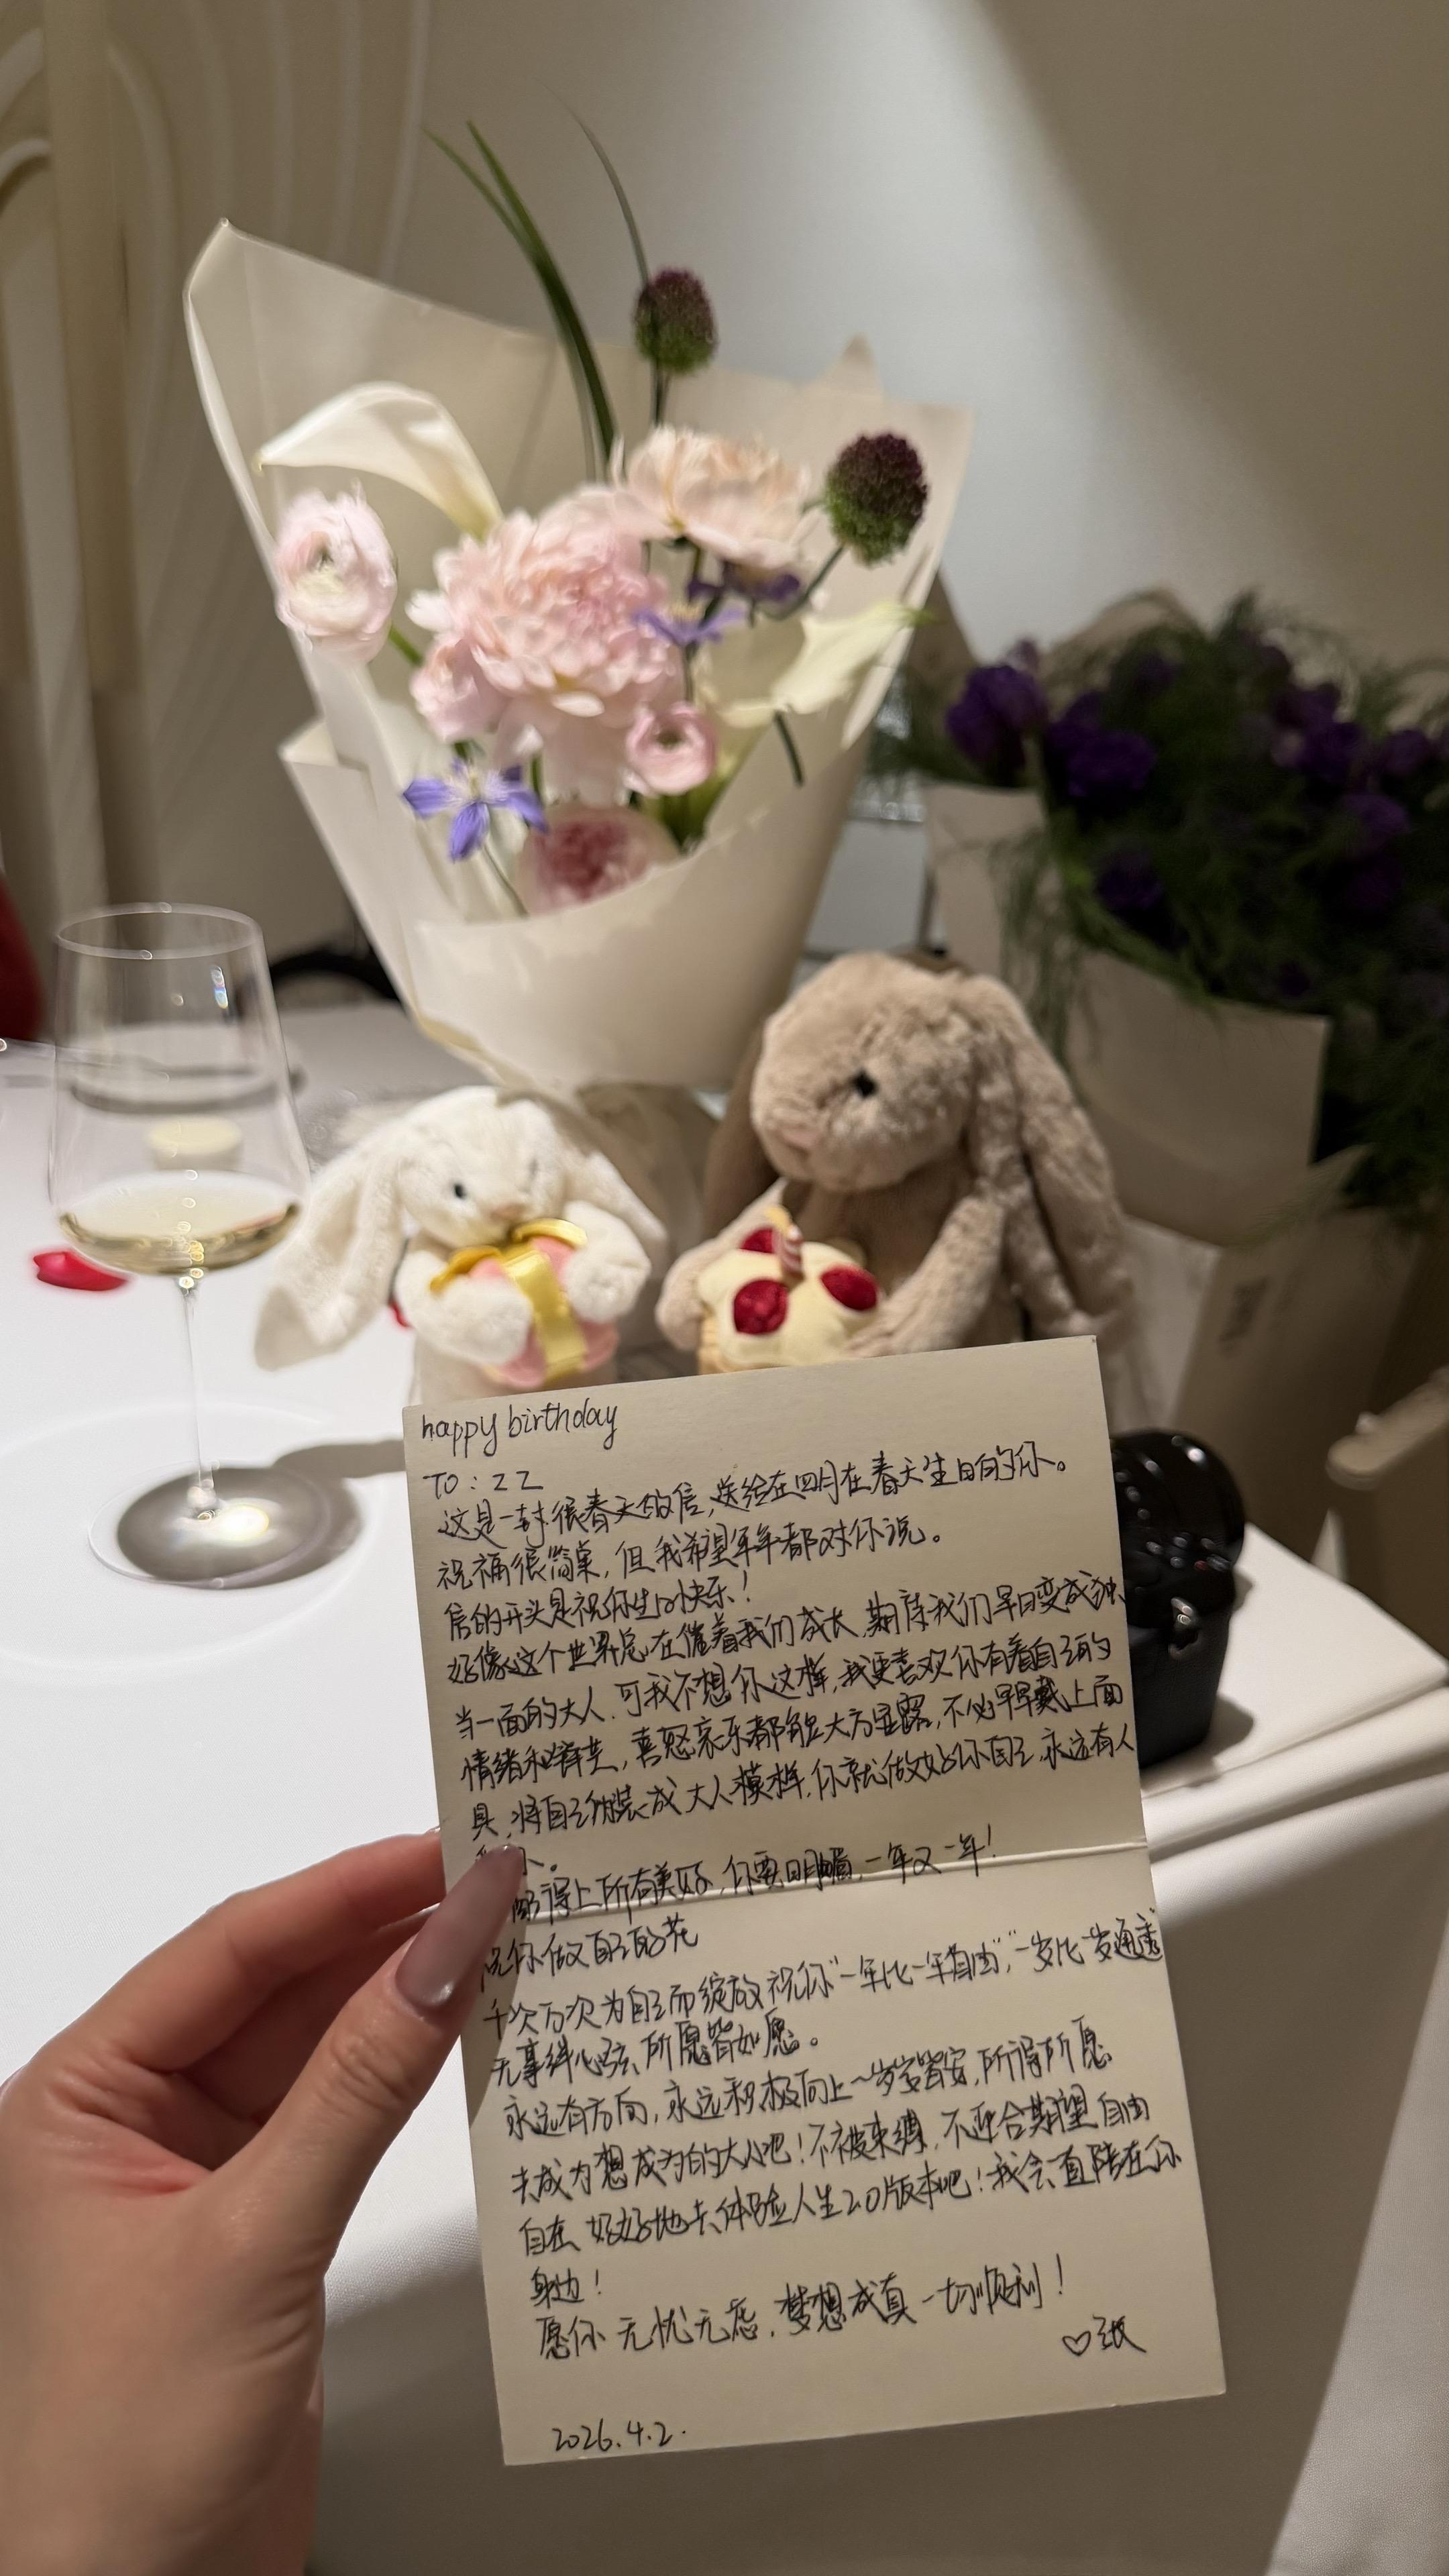 happy birthday
TO：ZZ
这是一封很春天的信，送给在四月在春天生日的你。
祝福很简单，但我希望年年都对你说。
信的开头是祝你生日快乐！
好像这个世界总在催着我们成长，期待我们早日变成独
当一面的大人，可我不想你这样，我更喜欢你有着自己的
情绪和，喜怒哀乐都能大方显露，不必早早戴上面
具，将自己伪装成大人模样，你就做好你自己，永远有人
你。
得上所有美好，你要明媚，一年又一年！
祝你做自己的花
千次万次为自己而绽放 祝你“一年比一年自由”，“一岁比一岁通透”
无事绊心弦，所愿皆如愿。
永远有方向，永远积极向上～岁岁皆安，所得所愿
去成为想成为的大人吧！不被束缚，不迎合期望 自由
自在，好好地去体验人生2.0版本吧！我会一直陪在你
身边！
愿你 无忧无虑，梦想成真 一切顺利！
♡张
2026.4.2.